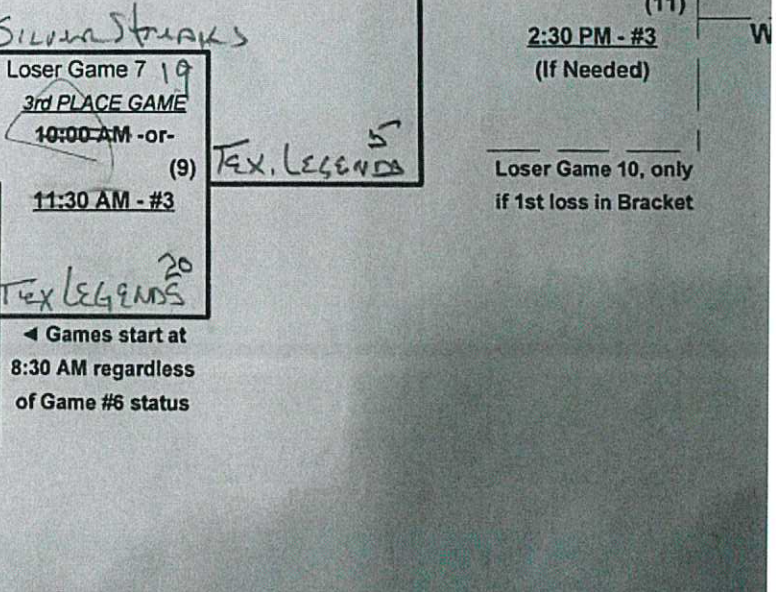 SILVER STREAKS
Loser Game 7 19
3rd PLACE GAME
10:00 AM -or-
(9)
11:30 AM - #3
20
TEX LEGENDS
◄ Games start at
8:30 AM regardless
of Game #6 status
5
TEX. LEGENDS
(11)
2:30 PM - #3
(If Needed)
Loser Game 10, only
if 1st loss in Bracket
W